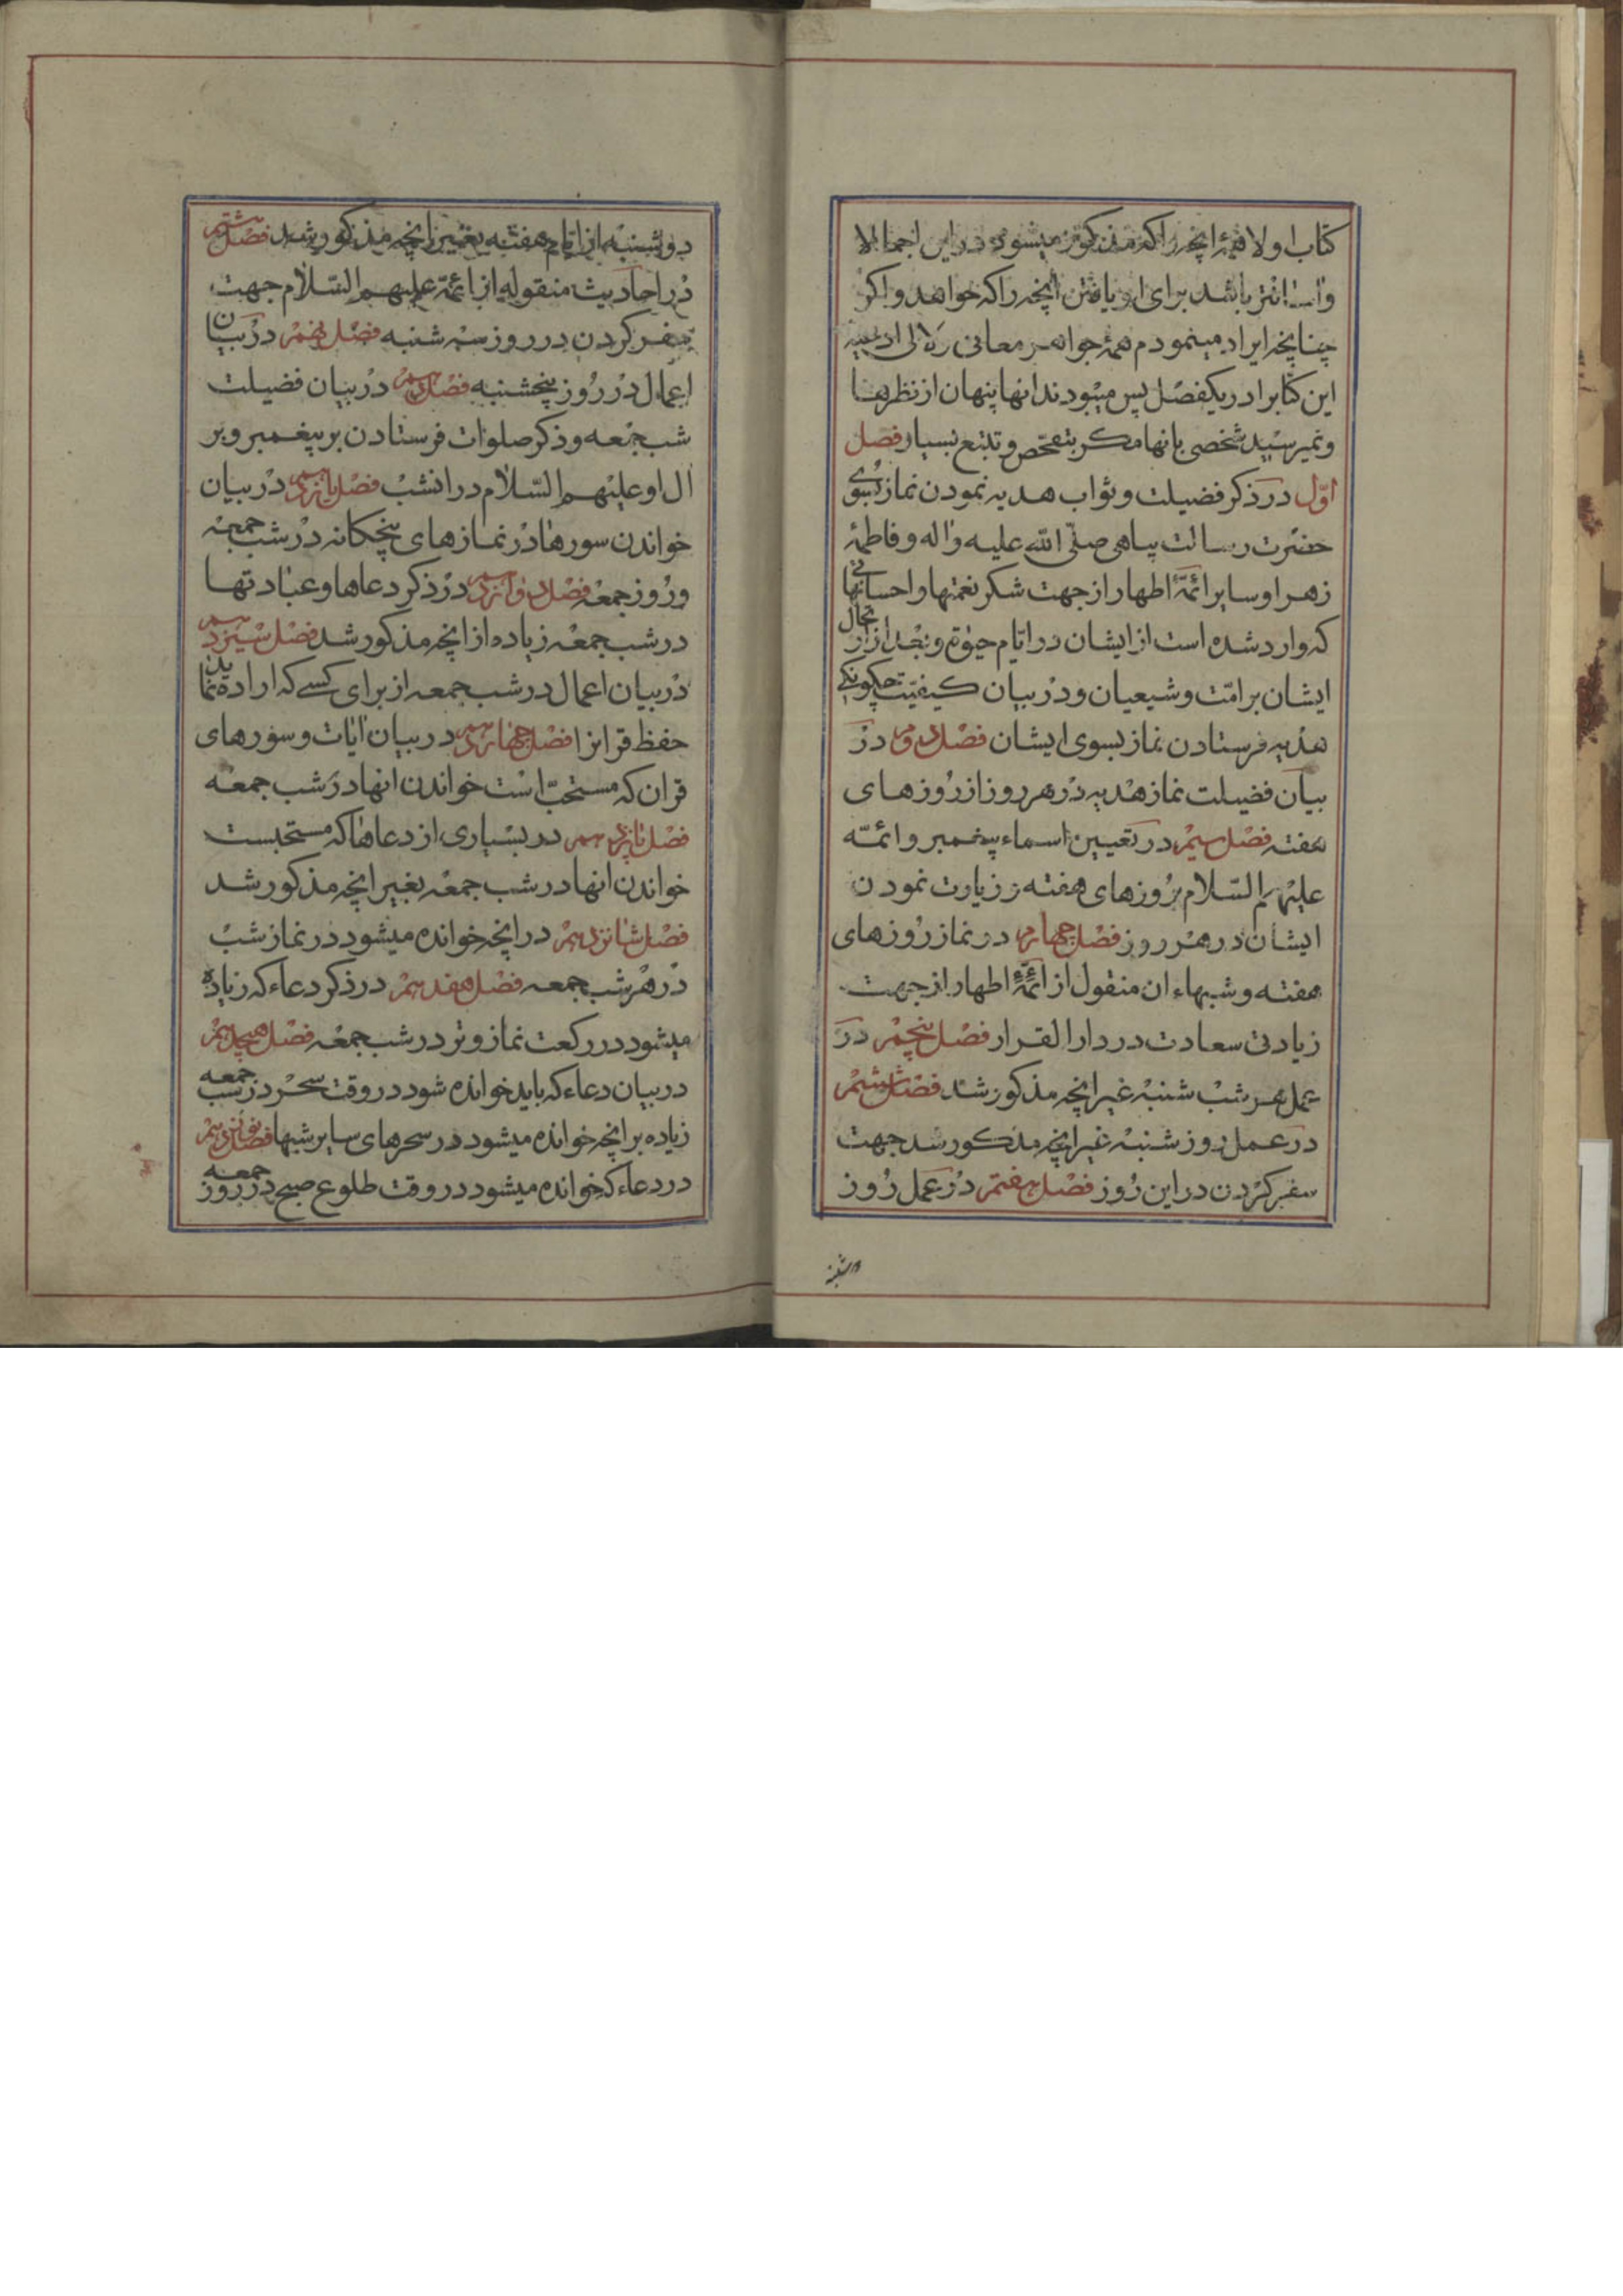 کتاب اولا همهٔ انچه را که مذکور میشود در این اجمالا
و اسانتر باشد برای او یافتن انچه را که خواهد و اکر
چنانچه ایراد مینمودم همهٔ جواهر معانی و لالی ادعیه
این کتابرا در یکفصل پس میبودند انها پنهان از نظرها
و نمیرسید شخصی بانها مکر بتفحّص و تتبع بسیار فصل
اوّل در ذکر فضیلت و ثواب هدیه نمودن نماز بسوی
حضرت رسالت پناهی صلّی الله علیه و اله و فاطمهٔ
زهرا و سایر ائمّهٔ اطهار از جهت شکر نعمتها و احسانهائی
که وارد شده است از ایشان در ایام حیوة و بعد از ارتحال
ایشان بر امّت و شیعیان و در بیان کیفیّت و چکونکی
هدیه فرستادن نماز بسوی ایشان فصل دوم در
بیان فضیلت نماز هدیه در هر روز از روزهای
هفته فصل سیم در تعیین اسماء پیغمبر و ائمّه
علیهم السّلام بروزهای هفته و زیارت نمودن
ایشان در هر روز فصل چهارم در نماز روزهای
هفته و شبهاء ان منقول از ائمّهٔ اطهار از جهت
زیادتی سعادت در دار القرار فصل پنجم در
عمل هر شب شنبه غیر انچه مذکور شد فصل ششم
در عمل روز شنبه غیر انچه مذکور شد جهت
سفر کردن در این روز فصل هفتم در عمل روز
دوشنبه
دوشنبه از ایام هفته بغیر انچه مذکور شد فصل هشتم
در احادیث منقوله از ائمّه علیهم السّلام جهت
سفر کردن در روز سه شنبه فصل نهم در بیان
اعمال در روز پنجشنبه فصل دهم در بیان فضیلت
شب جمعه و ذکر صلوات فرستادن بر پیغمبر و بر
ال او علیهم السّلام در انشب فصل یازدهم در بیان
خواندن سورها در نمازهای پنجکانه در شب جمعه
و روز جمعه فصل دوازدهم در ذکر دعاها و عبادتها
در شب جمعه زیاده از انچه مذکور شد فصل سیزدهم
در بیان اعمال در شب جمعه از برای کسی که اراده نماید
حفظ قرانرا فصل چهاردهم در بیان ایات و سورهای
قران که مستحبّ است خواندن انها در شب جمعه
فصل پانزدهم در بسیاری از دعاها که مستحبست
خواندن انها در شب جمعه بغیر انچه مذکور شد
فصل شانزدهم در انچه خوانده میشود در نماز شب
در هر شب جمعه فصل هفدهم در ذکر دعاء که زیاده
میشود در رکعت نماز وتر در شب جمعه فصل هیجدهم
در بیان دعاء که باید خوانده شود در وقت سحر در شب جمعه
زیاده بر انچه خوانده میشود در سحرهای سایر شبها فصل نوزدهم
در دعاء که خوانده میشود در وقت طلوع صبح در روز جمعه